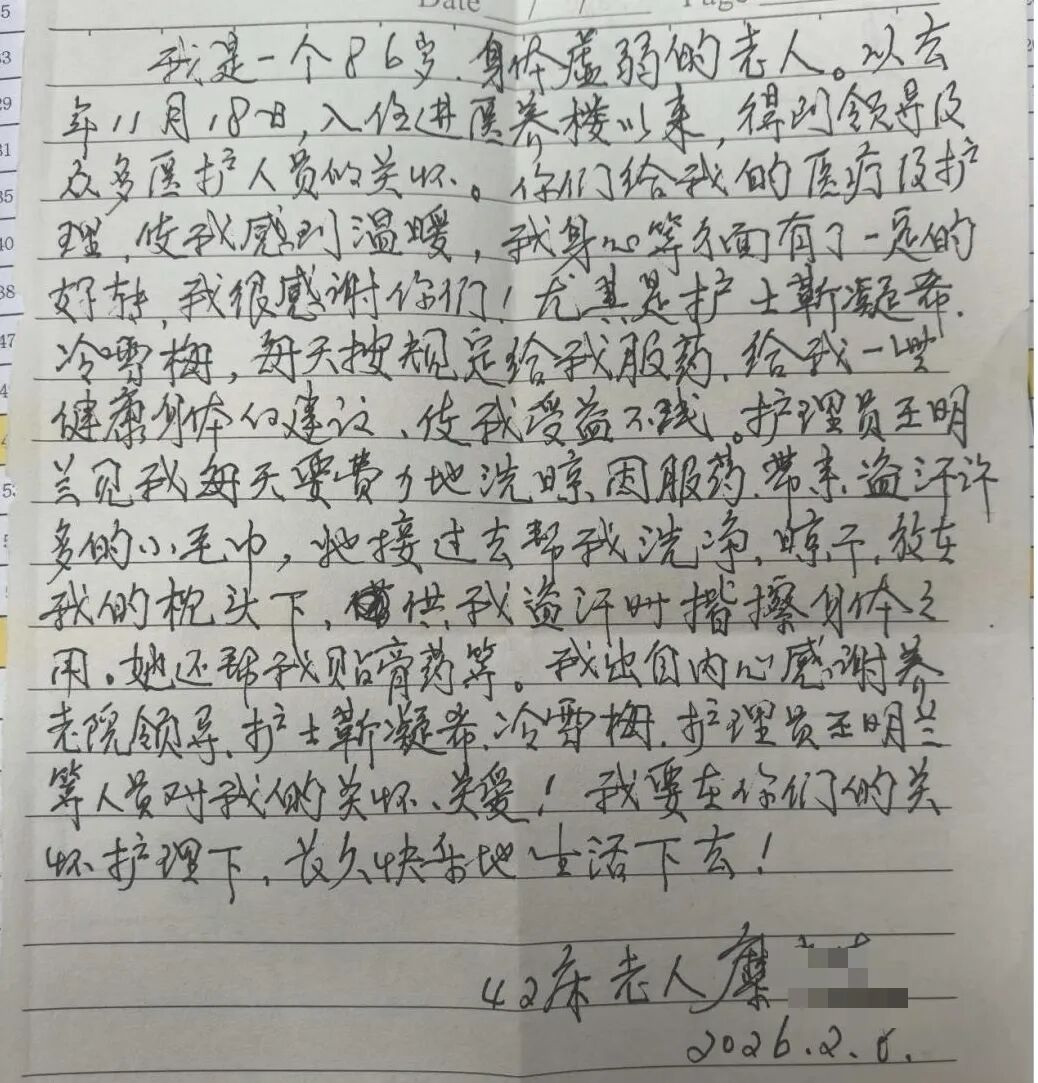 Date / /  Page
我是一个86岁、身体虚弱的老人。从去
年11月18日，入住进医养楼以来，得到领导及
众多医护人员的关怀。你们给我的医疗及护
理，使我感到温暖，我身心等方面有了一定的
好转，我很感谢你们！尤其是护士靳凝希、
冷雪梅，每天按规定给我服药，给我一些
健康身体的建议、使我受益不浅。护理员王明
兰见我每天要费力地洗晾因服药、带来盗汗许
多的小毛巾，她接过去帮我洗净、晾干，放在
我的枕头下，供我盗汗时揩擦身体之
用。她还帮我贴膏药等。我出自内心感谢养
老院领导、护士靳凝希、冷雪梅、护理员王明兰
等人员对我的关怀、关爱！我要在你们的关
怀护理下，长久快乐地生活下去！
42床老人
2026.2.